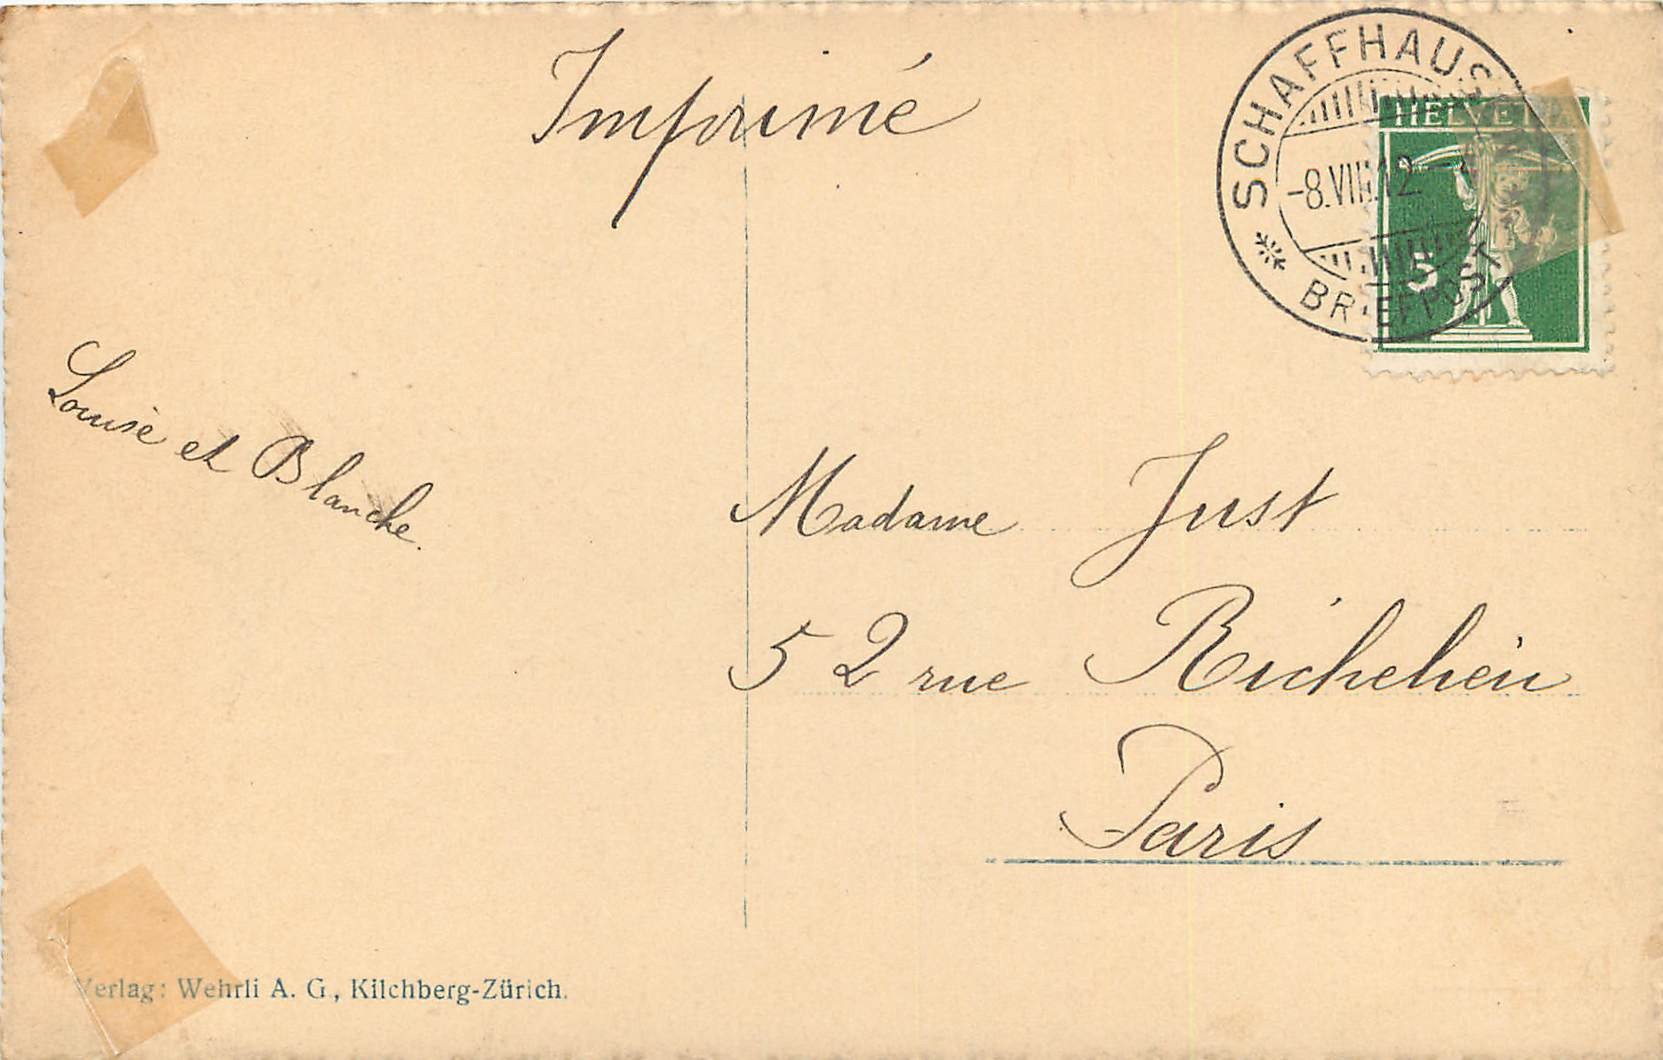 Imprimé
SCHAFFHAUS
-8.VIII.12.-
BRIEFPOST
HELVETIA
5
Louise et Blanche.
Madame Just
52 rue Richelieu
Paris
Verlag: Wehrli A. G., Kilchberg-Zürich.